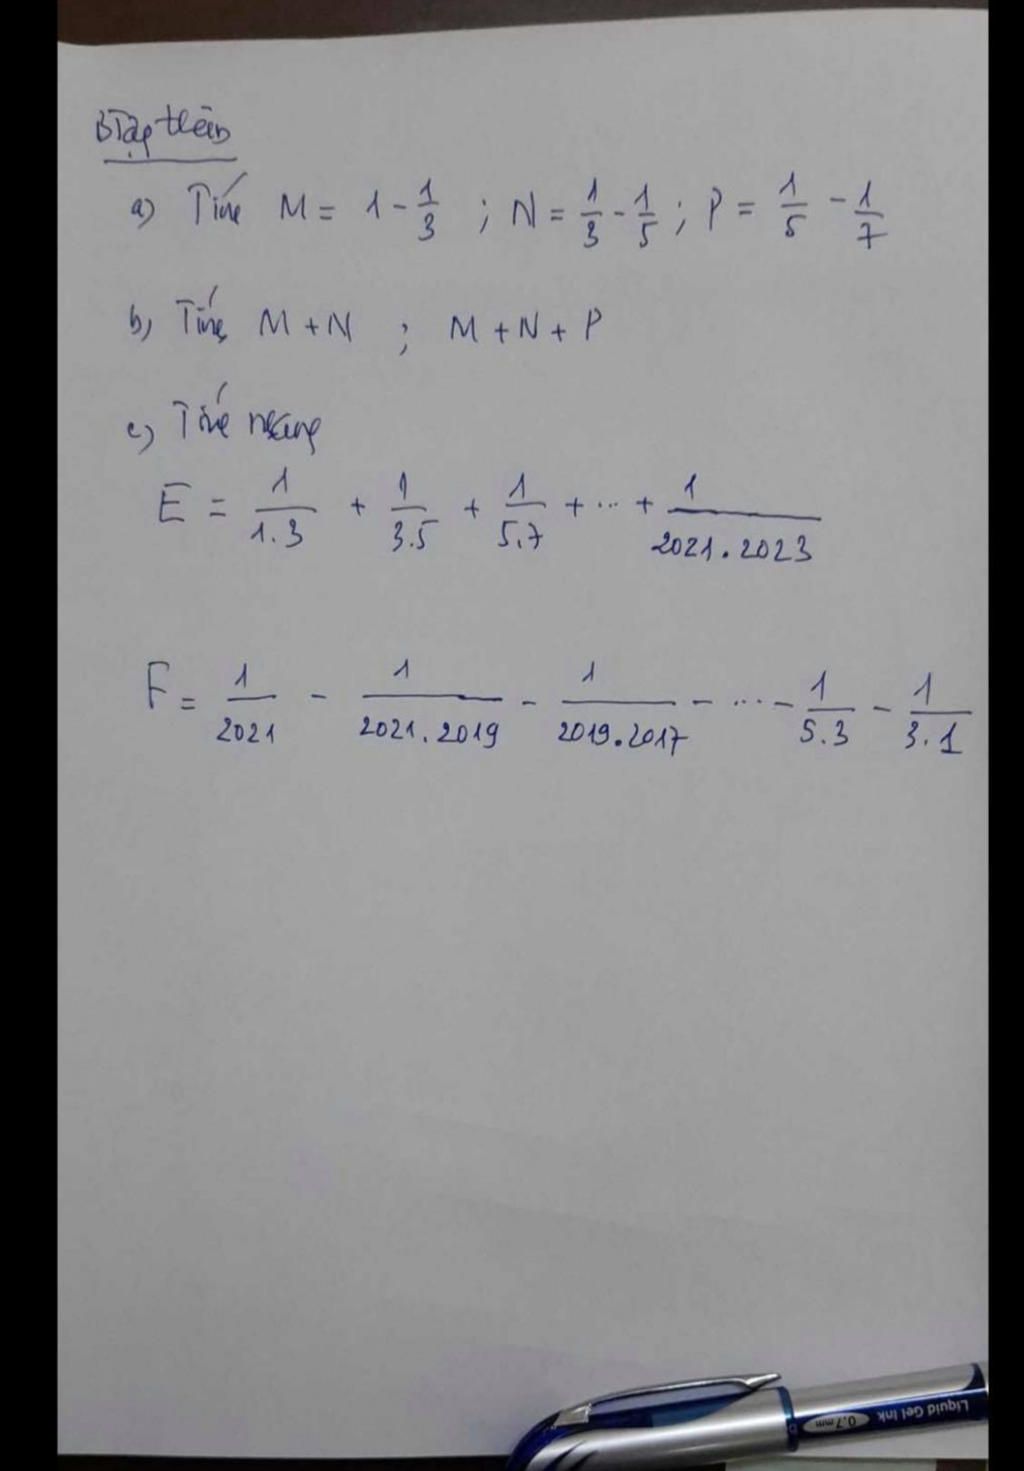 BTập thêm
a) Tính M = 1 - 1/3 ; N = 1/3 - 1/5 ; P = 1/5 - 1/7
b) Tính M + N ; M + N + P
c) Tính nhanh
E = 1/1.3 + 1/3.5 + 1/5.7 + ... + 1/2021.2023
F = 1/2021 - 1/2021.2019 - 1/2019.2017 - ... - 1/5.3 - 1/3.1
Liquid Gel Ink 0.7mm